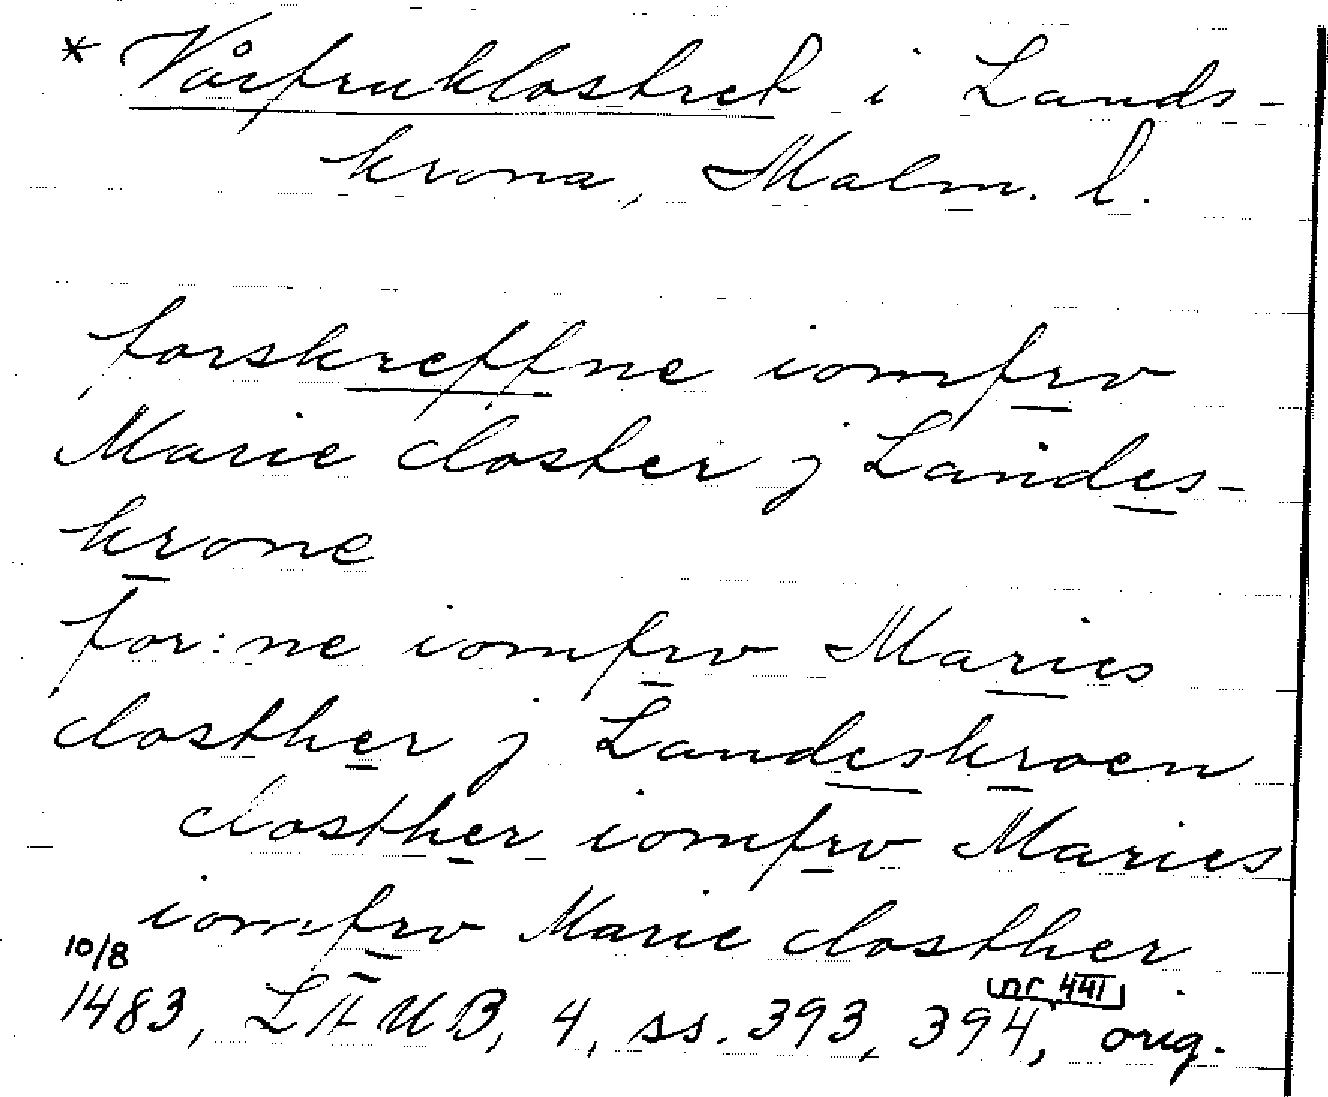 * Vårfruklostret i Lands-
krona, Malm. l.
forskreffne iomfrv
Marie closter j Landes-
krone
for:ne iomfrv Maries
closther j Landeskroen
closther iomfrv Maries
iomfrv Marie closther
10/8
nr 441
1483, LÄUB, 4, ss. 393, 394, orig.